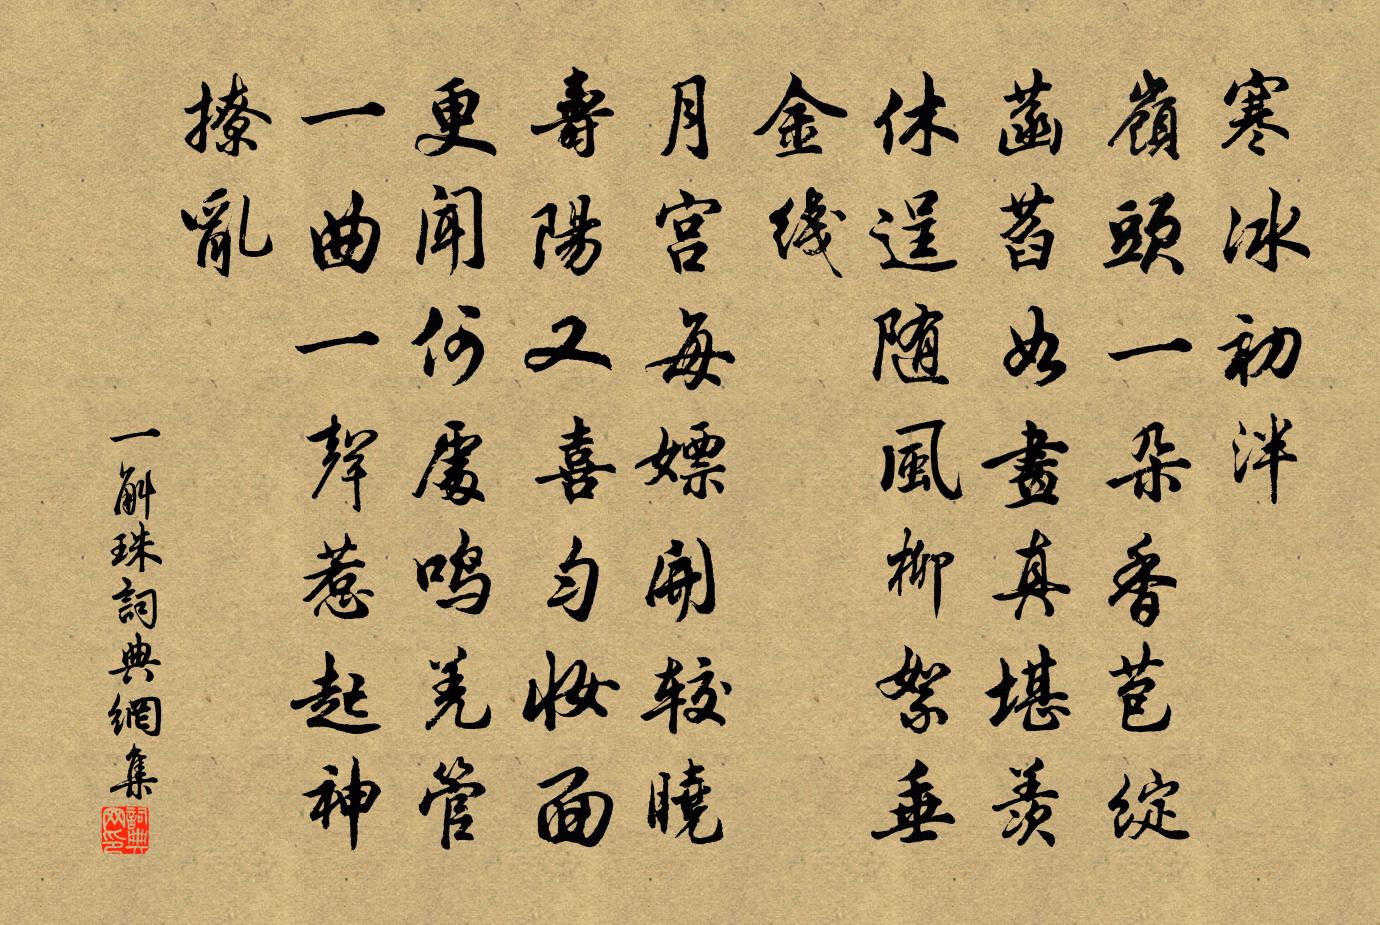 寒冰初泮
嶺頭一朵香苞綻
菡萏如畫真堪羨
休逞随風柳絮垂
金线
月宫每嫖開較曉
壽陽又喜匀妝面
更聞何處鳴羌管
一曲一聲惹起神
撩亂
一斛珠詞典網集
詞典网印